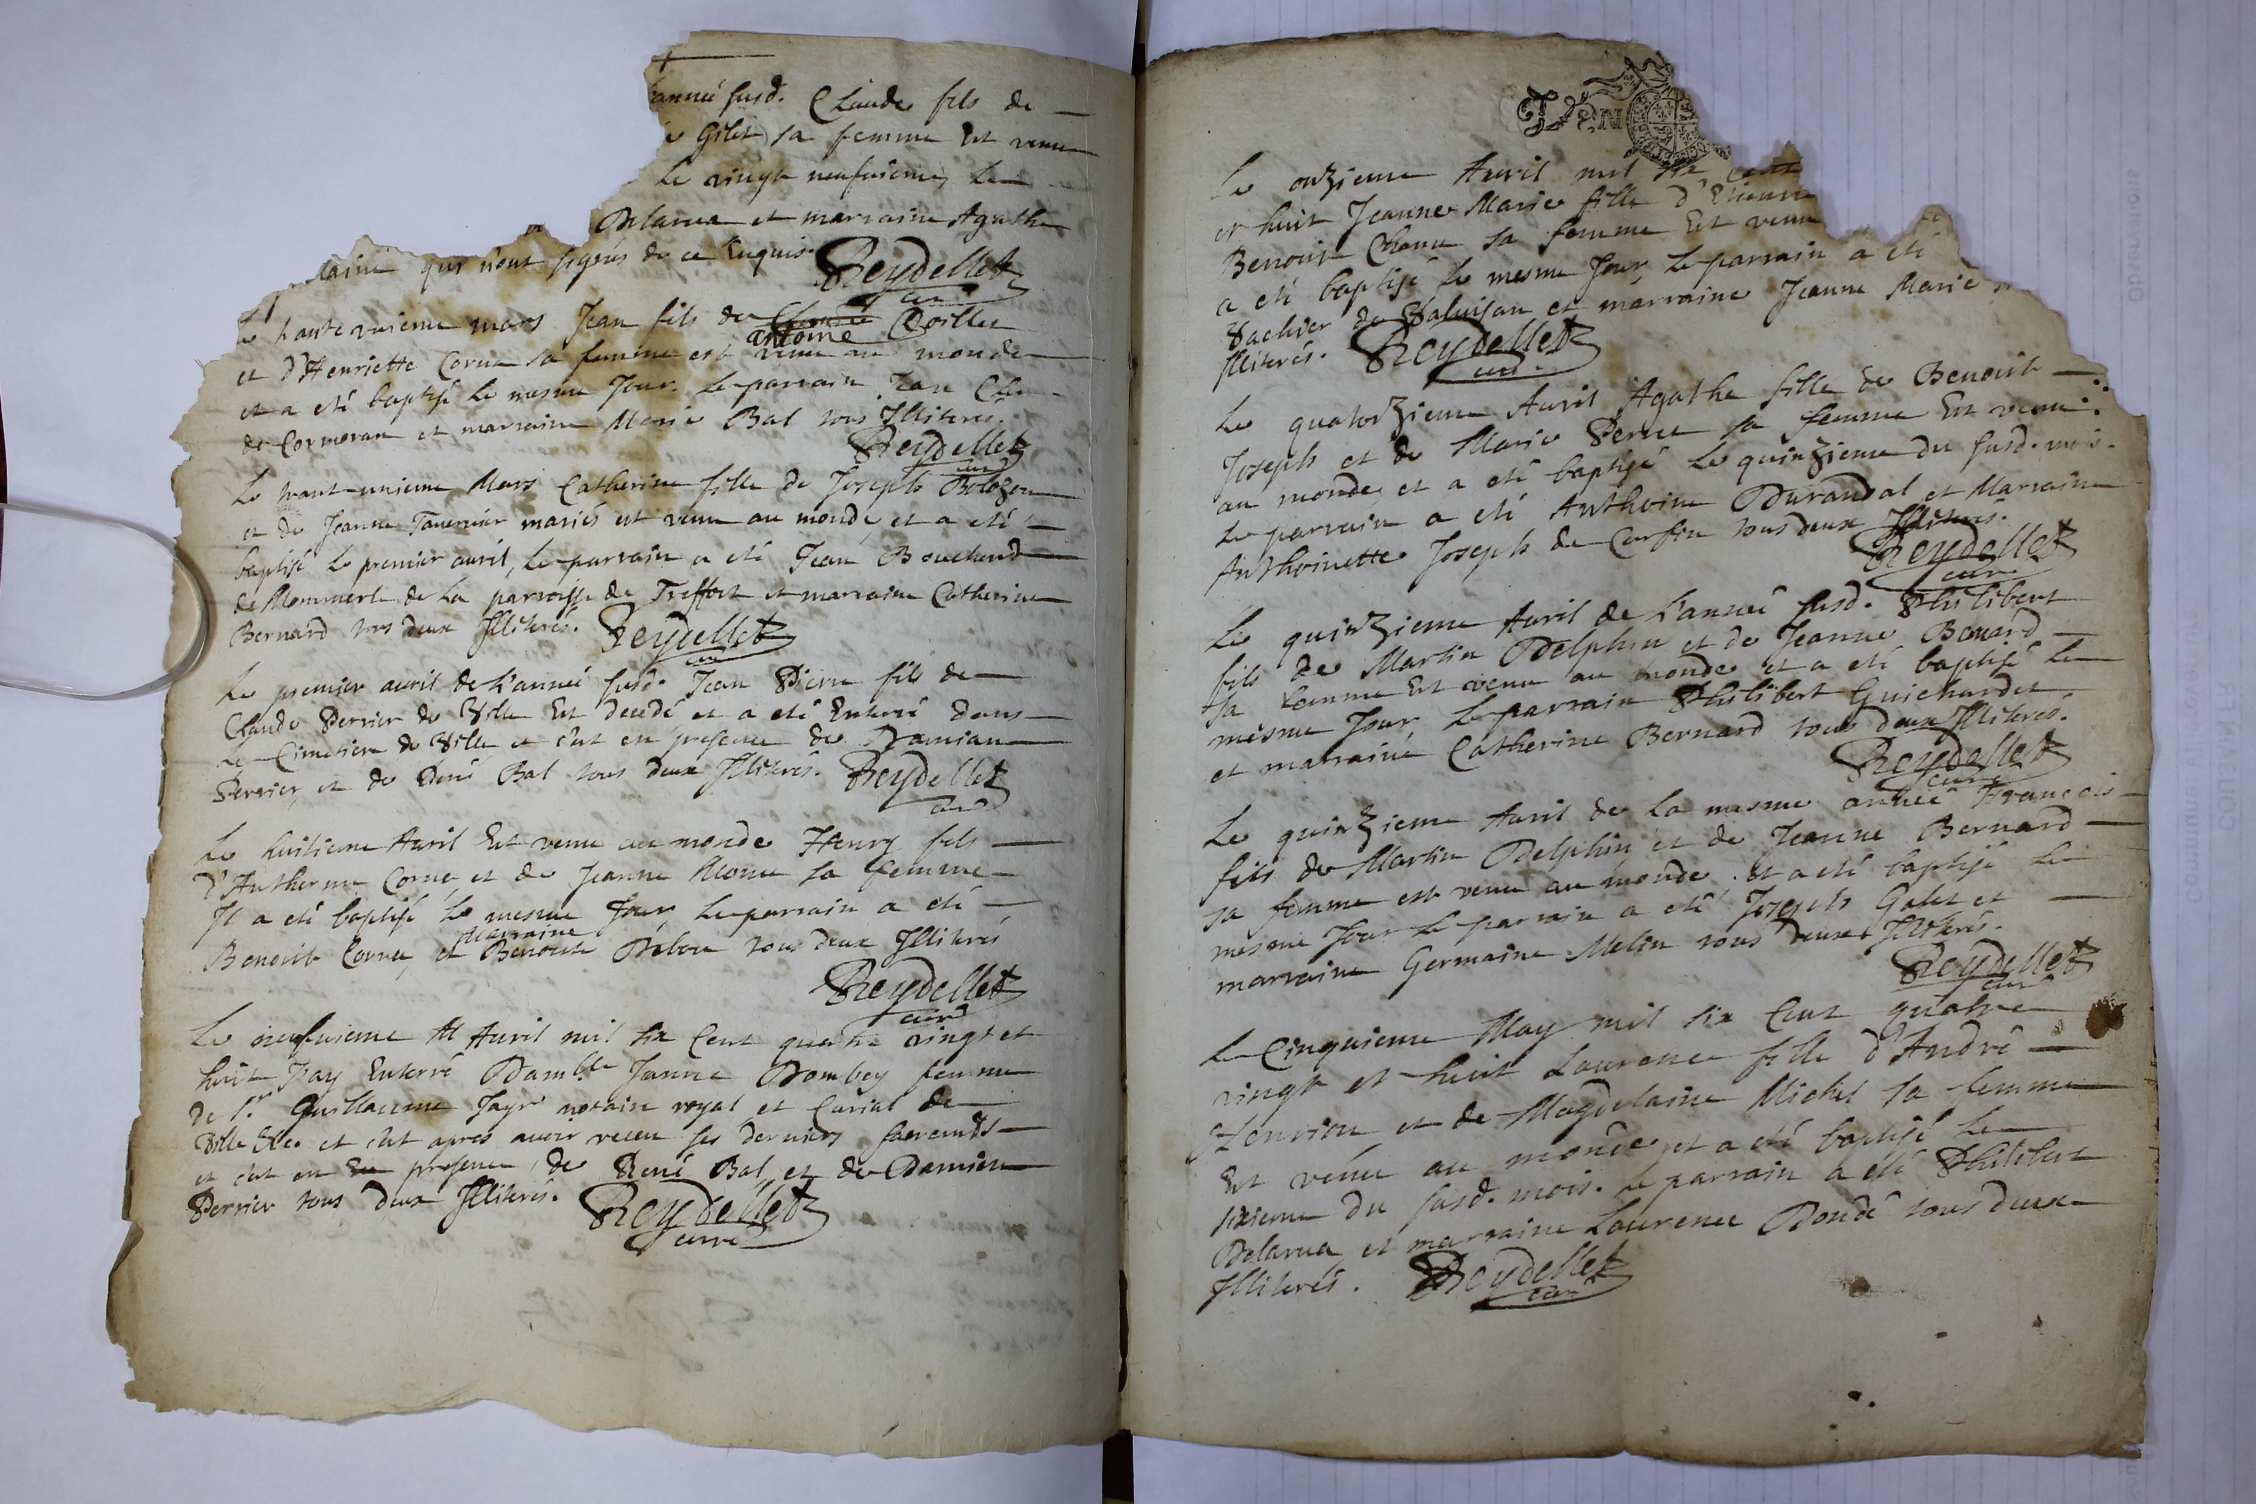 année susd. Claude fils de
Gilet sa femme Est venu
Le vingt neufuieme, Le
Delarua et marraine Agathe
qui n'ont signés de ce Enquis.
Reydellet
curé
trante unieme mars Jean fils de Doillet
antoine
et d'Henriette Cornu sa femme est venu au monde
et a eté baptisé le mesme Jour. Le parrain Jean
de Cormoran et marraine Marie Bal tous Illiterés.
Reydellet
curé
Le trant-unieme Mars Catherine fille de Joseph Bolozon
et de Jeanne Tauernier mariés est venu au monde, et a eté
baptisé le premier auril, Le parrain a eté Jean Bouchard
de Monmerle de La parroisse de Treffort et marraine Catherine
Bernard tous deux Illiterés. Reydellet
curé
Le premier auril de L'année susd. Jean Pierre fils de
Claude Perrier de Ville Est decedé et a eté Enterré dans
Le Cimetiere de Ville et c'est en presence de Damian
Perrier, et de René Bal tous deux Illiterés. Reydellet
curé
Le huitieme Auril Est venu au monde Henry fils
d'Anthelme Cornu et de Jeanne sa femme
Il a eté baptisé le mesme Jour Le parrain a eté
marraine
Benoist Cornu, et Benoite Debou tous deux Illiterés
Reydellet
curé
Le neufuieme Auril mil six Cent quatre vingt et
huit J'ay Enterré Dam.lle Janne Dombey femme
de S.r Guillaume Jayr notaire royal et Curial de
Ville &c. et c'est apres auoir receu ses derniers sacremts
et c'est en presence de René Bal et de Damien
Perrier tous deux Illiterés. Reydellet
curé
Le onzieme Auril mil six cent
et huit Jeanne Marie fille d'Etienne
Benoiste Chanu sa femme Est venu
a eté baptisé le mesme Jour, Le parrain a eté
Vachier de et marraine Jeanne Marie
Illiterés. Reydellet
curé
Le quatorzieme Auril Agathe fille de Benoist
Joseph et de Marie Perret sa femme Est venu
au monde, et a eté baptisé Le quinzieme du susd. mois.
Le parrain a eté Anthoine Durandal et Marraine
Anthoinette Joseph de Corfin tous deux Illiterés.
Reydellet
curé
Le quinzieme Auril de L'année susd. Philibert
fils de Martin Delphin et de Jeanne Benard
sa femme Est venu au monde et a eté baptisé Le
mesme Jour, Le parrain Philibert Guichardet
et marraine Catherine Bernard tous deux Illiterés.
Reydellet
curé
Le quinzieme Auril de La mesme année François
fils de Martin Delphin et de Jeanne Bernard
sa femme est venu au monde. Et a eté baptisé Le
mesme Jour Le parrain a eté Joseph Galet et
marraine Germaine Melin tous deux Illiterés.
Reydellet
curé
Le Cinquieme May mil six Cent quatre
vingt et huit Laurence fille d'André
et de Magdelaine Michel sa femme
Est venu au monde, et a eté baptisé Le
sixieme du susd. mois. Le parrain a eté Philibert
Delarua et marraine Laurence Dondé tous deux
Illiterés. Reydellet
curé